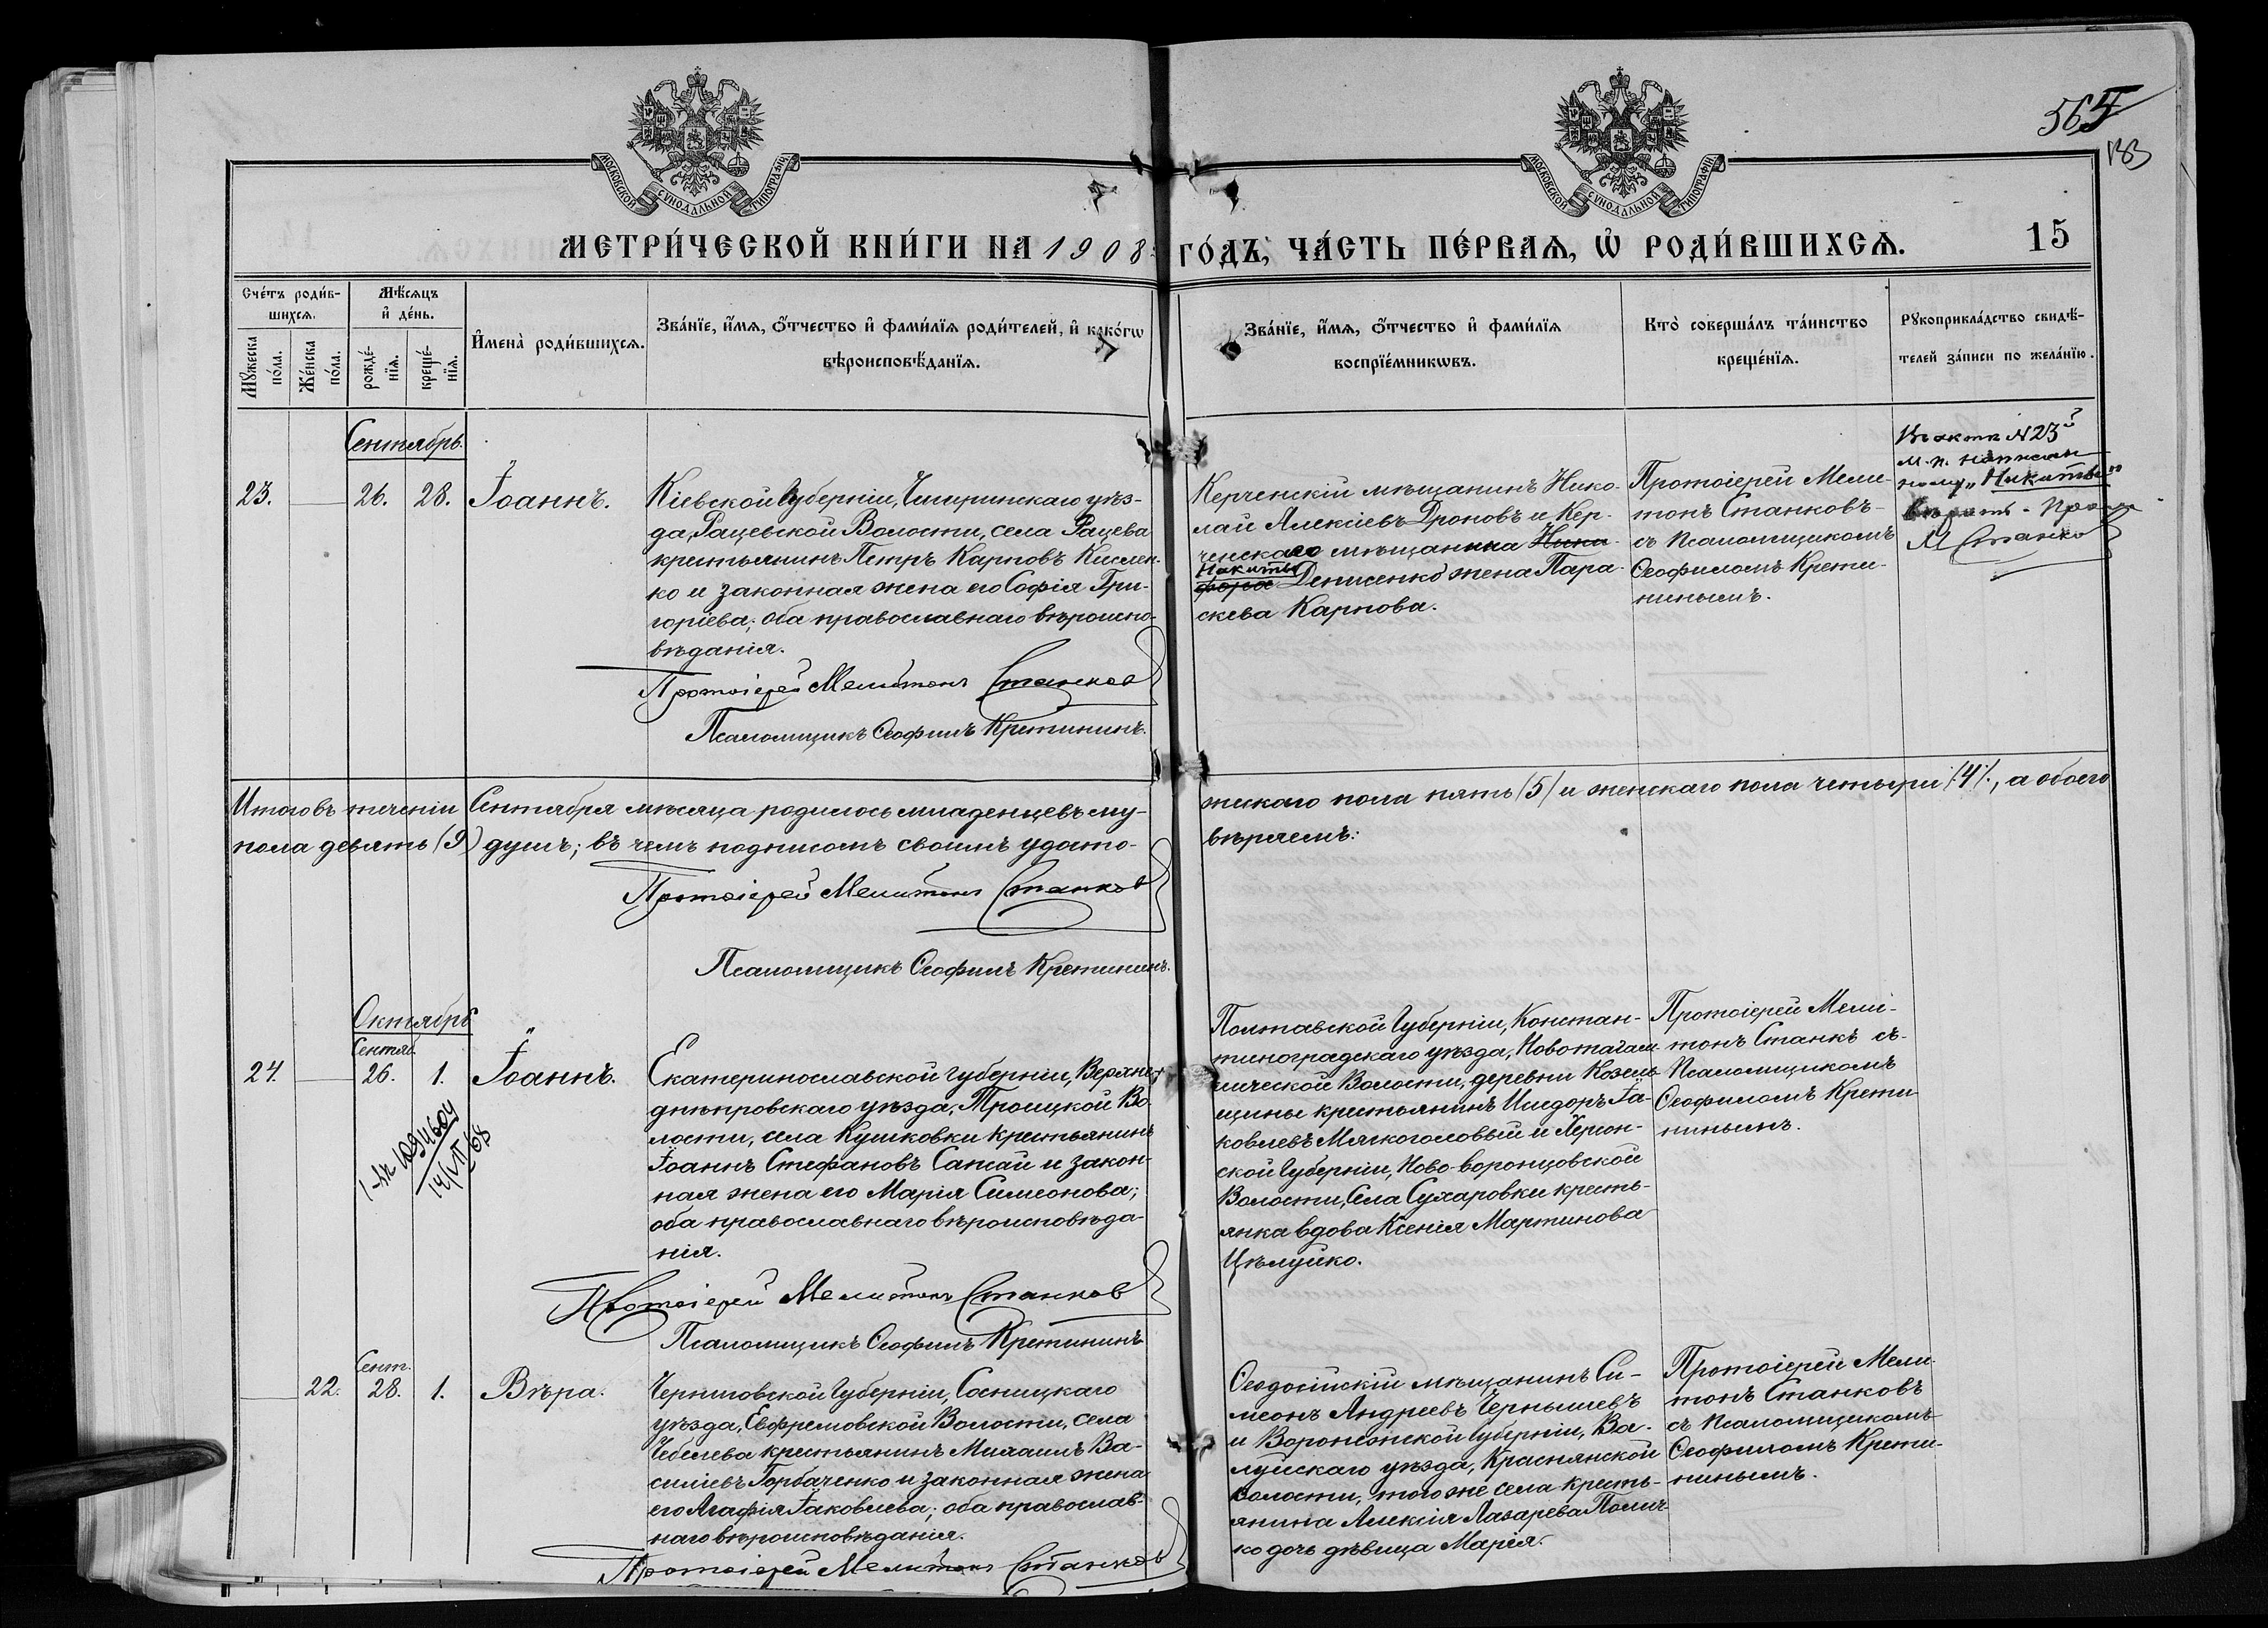 565
183
МОСКОВСКОЙ СѴНОДАЛЬНОЙ ТИПОГРАФІИ
МОСКОВСКОЙ СѴНОДАЛЬНОЙ ТИПОГРАФІИ
МЕТРИ́ЧЕСКОЙ КНИ́ГИ НА 1908 ГО́ДЪ, ЧА́СТЬ ПЕ́РВАѦ, Ѡ҆ РОДИ́ВШИХСѦ.
15
Сче́тъ роди́в-
шихсѧ.
Мꙋ́жеска по́ла.
Же́нска по́ла.
Мѣ́сяцъ
и҆ де́нь.
рожде́-
нїѧ.
креще́-
нїѧ.
И҆мена̀ роди́вшихсѧ.
Зва́нїе, и҆́мѧ, ѻ҆́тчество и҆ фами́лїѧ роди́телей, и҆ како́гѡ
вѣроисповѣ́данїѧ.
Зва́нїе, и҆́мѧ, ѻ҆́тчество и҆ фами́лїѧ
воспрїе́мникѡвъ.
Кто̀ соверша́лъ та́инство
креще́нїѧ.
Рꙋкоприкла́дство свидѣ́-
телей за́писи по жела́нїю.
Сентябрь.
23.
26.
28.
Іоаннъ.
Кіевской Губерніи, Чигиринскаго уѣз-
да, Рацевской Волости, села Рацева
крестьянинъ Петръ Карповъ Кислен-
ко и законная жена его Софія Гри-
горіева; оба православнаго вѣроиспо-
вѣданія.
Протоіерей Мелитонъ Станков
Псаломщикъ Ѳеофилъ Кретининъ.
Керченскій мѣщанинъ Нико-
лай Алексіевъ Дроновъ и Кер-
ченскаго мѣщанина Ники-
Никиты
фора Денисенко жена Пара-
скева Карпова.
Протоіерей Мели-
тонъ Станковъ
съ Псаломщикомъ
Ѳеофиломъ Крети-
нинымъ.
Въ актѣ N 23й
м. п.
"Никиты"
вѣрить
М Станко
Итого въ теченіи Сентября мѣсяца родилось младенцевъ му-
жескаго пола пять (5) и женскаго пола четыри (4), а обоего
пола девять (9) душъ; въ чемъ подписомъ своимъ удосто-
вѣряемъ:
Протоіерей Мелитонъ Станков
Псаломщикъ Ѳеофилъ Кретининъ.
Октябрь
Сентяб.
24.
26.
1.
Іоаннъ.
14/VII 68
Екатеринославской Губерніи, Верхне-
днѣпровскаго уѣзда, Троицкой Во-
лости, села Кушковки крестьянинъ
Іоаннъ Стефановъ Сажай и закон-
ная жена его Марія Симеонова;
оба православнаго вѣроисповѣда-
нія.
Протоіерей Мелитонъ Станков
Псаломщикъ Ѳеофилъ Кретининъ
Полтавской Губерніи, Констан-
тиноградскаго уѣзда, Новотагам-
лической Волости, деревни Козель-
щины крестьянинъ Исидоръ Іа-
ковлевъ Мягкоголовый и Херсон-
ской Губерніи, Ново-воронцовской
Волости, Села Сухаровки кресть-
янка вдова Ксенія Мартинова
Цѣлуйко.
Протоіерей Мели-
тонъ Станкъ съ
Псаломщикомъ
Ѳеофиломъ Крети-
нинымъ.
Сент.
22.
28.
1.
Вѣра.
Черниговской Губерніи, Сосницкаго
уѣзда, Евфремовской Волости, села
Чебелева крестьянинъ Михаилъ Ва-
силіевъ Горбаченко и законная жена
его Агафія Іаковлева; оба православ-
наго вѣроисповѣданія.
Протоіерей Мелитонъ Станков
Ѳеодосійскій мѣщанинъ Си-
меонъ Андреевъ Чернышевъ
и Воронежской Губерніи, Ва-
луйскаго уѣзда, Краснянской
волости, того же села кресть-
янина Алексія Лазарева Полич-
ко дочь дѣвица Марія.
Протоіерей Мели-
тонъ Станковъ
съ Псаломщикомъ
Ѳеофиломъ Крети-
нинымъ.